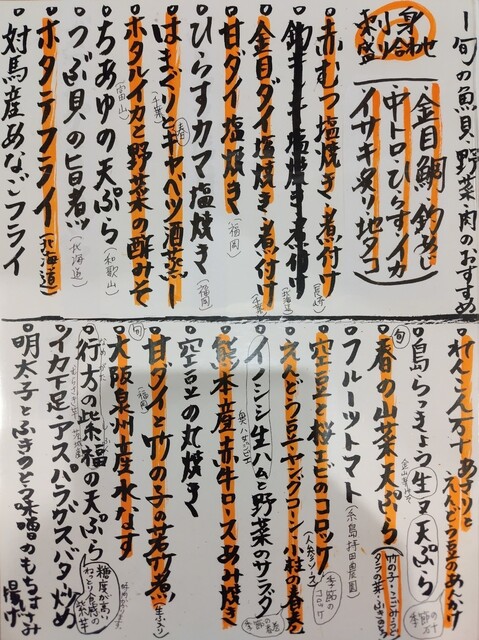 旬の魚貝、野菜、肉のおすすめ
お刺身
小盛り合わせ
金目鯛・釣あじ
中トロ・ひらすイカ
イサキ炙り地タコ
赤むつ塩焼き・煮付け(長崎)
塩焼き・煮付け(北海道)
金目ダイ塩焼き・煮付け(千葉)
甘ダイ塩焼き(福岡)
ひらすカマ塩焼き(福岡)
はまぐりと春キャベツ酒蒸し(千葉)
ホタルイカと野菜の酢みそ(富山)
ちあゆの天ぷら(和歌山)
つぶ貝の旨煮(北海道)
ホタテフライ(北海道)
対馬産めなごフライ
れんこん万十あさりとえんどう豆のあんかけ
島らっきょう生又天ぷら
旬 春の山菜天ぷら
竹の子・こごみ・うど
タラの芽・ふきのとう
フルーツトマト(糸島持田農園)
空豆と桜エビのコロッケ(人参ソース)
季節のコロッケ
えんどう豆ヤングコーン小柱の春巻
季節の春巻
イノシシ生ハムと野菜のサラダ
熊本産赤牛ロースあみ焼き
空豆の丸焼き
甘ダイと竹の子の若竹煮(福岡)
旬 大阪泉州産水なす
行方の紫福の天ぷら
なめがた
茨城県
糖度が高い
ねっとり食感の
紫芋
イカ下足・アスパラガスバタ炒め
明太子とふきのとう味噌のもちはさみ揚げ